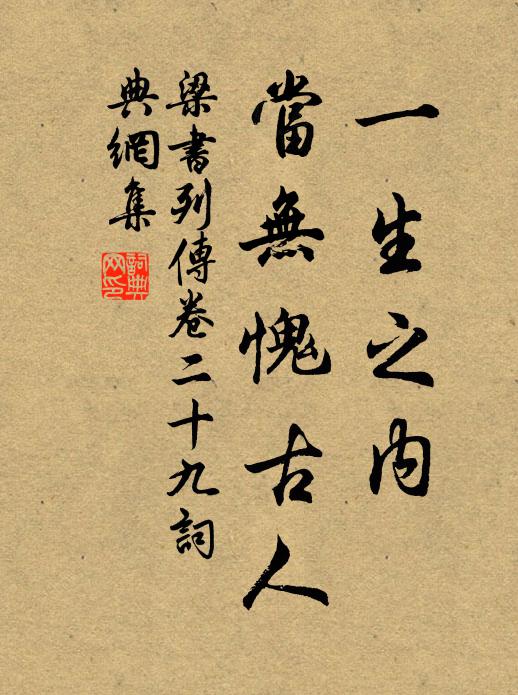 一生之内
當無愧古人
梁書列傳卷二十九詞
典網集
詞典
网印